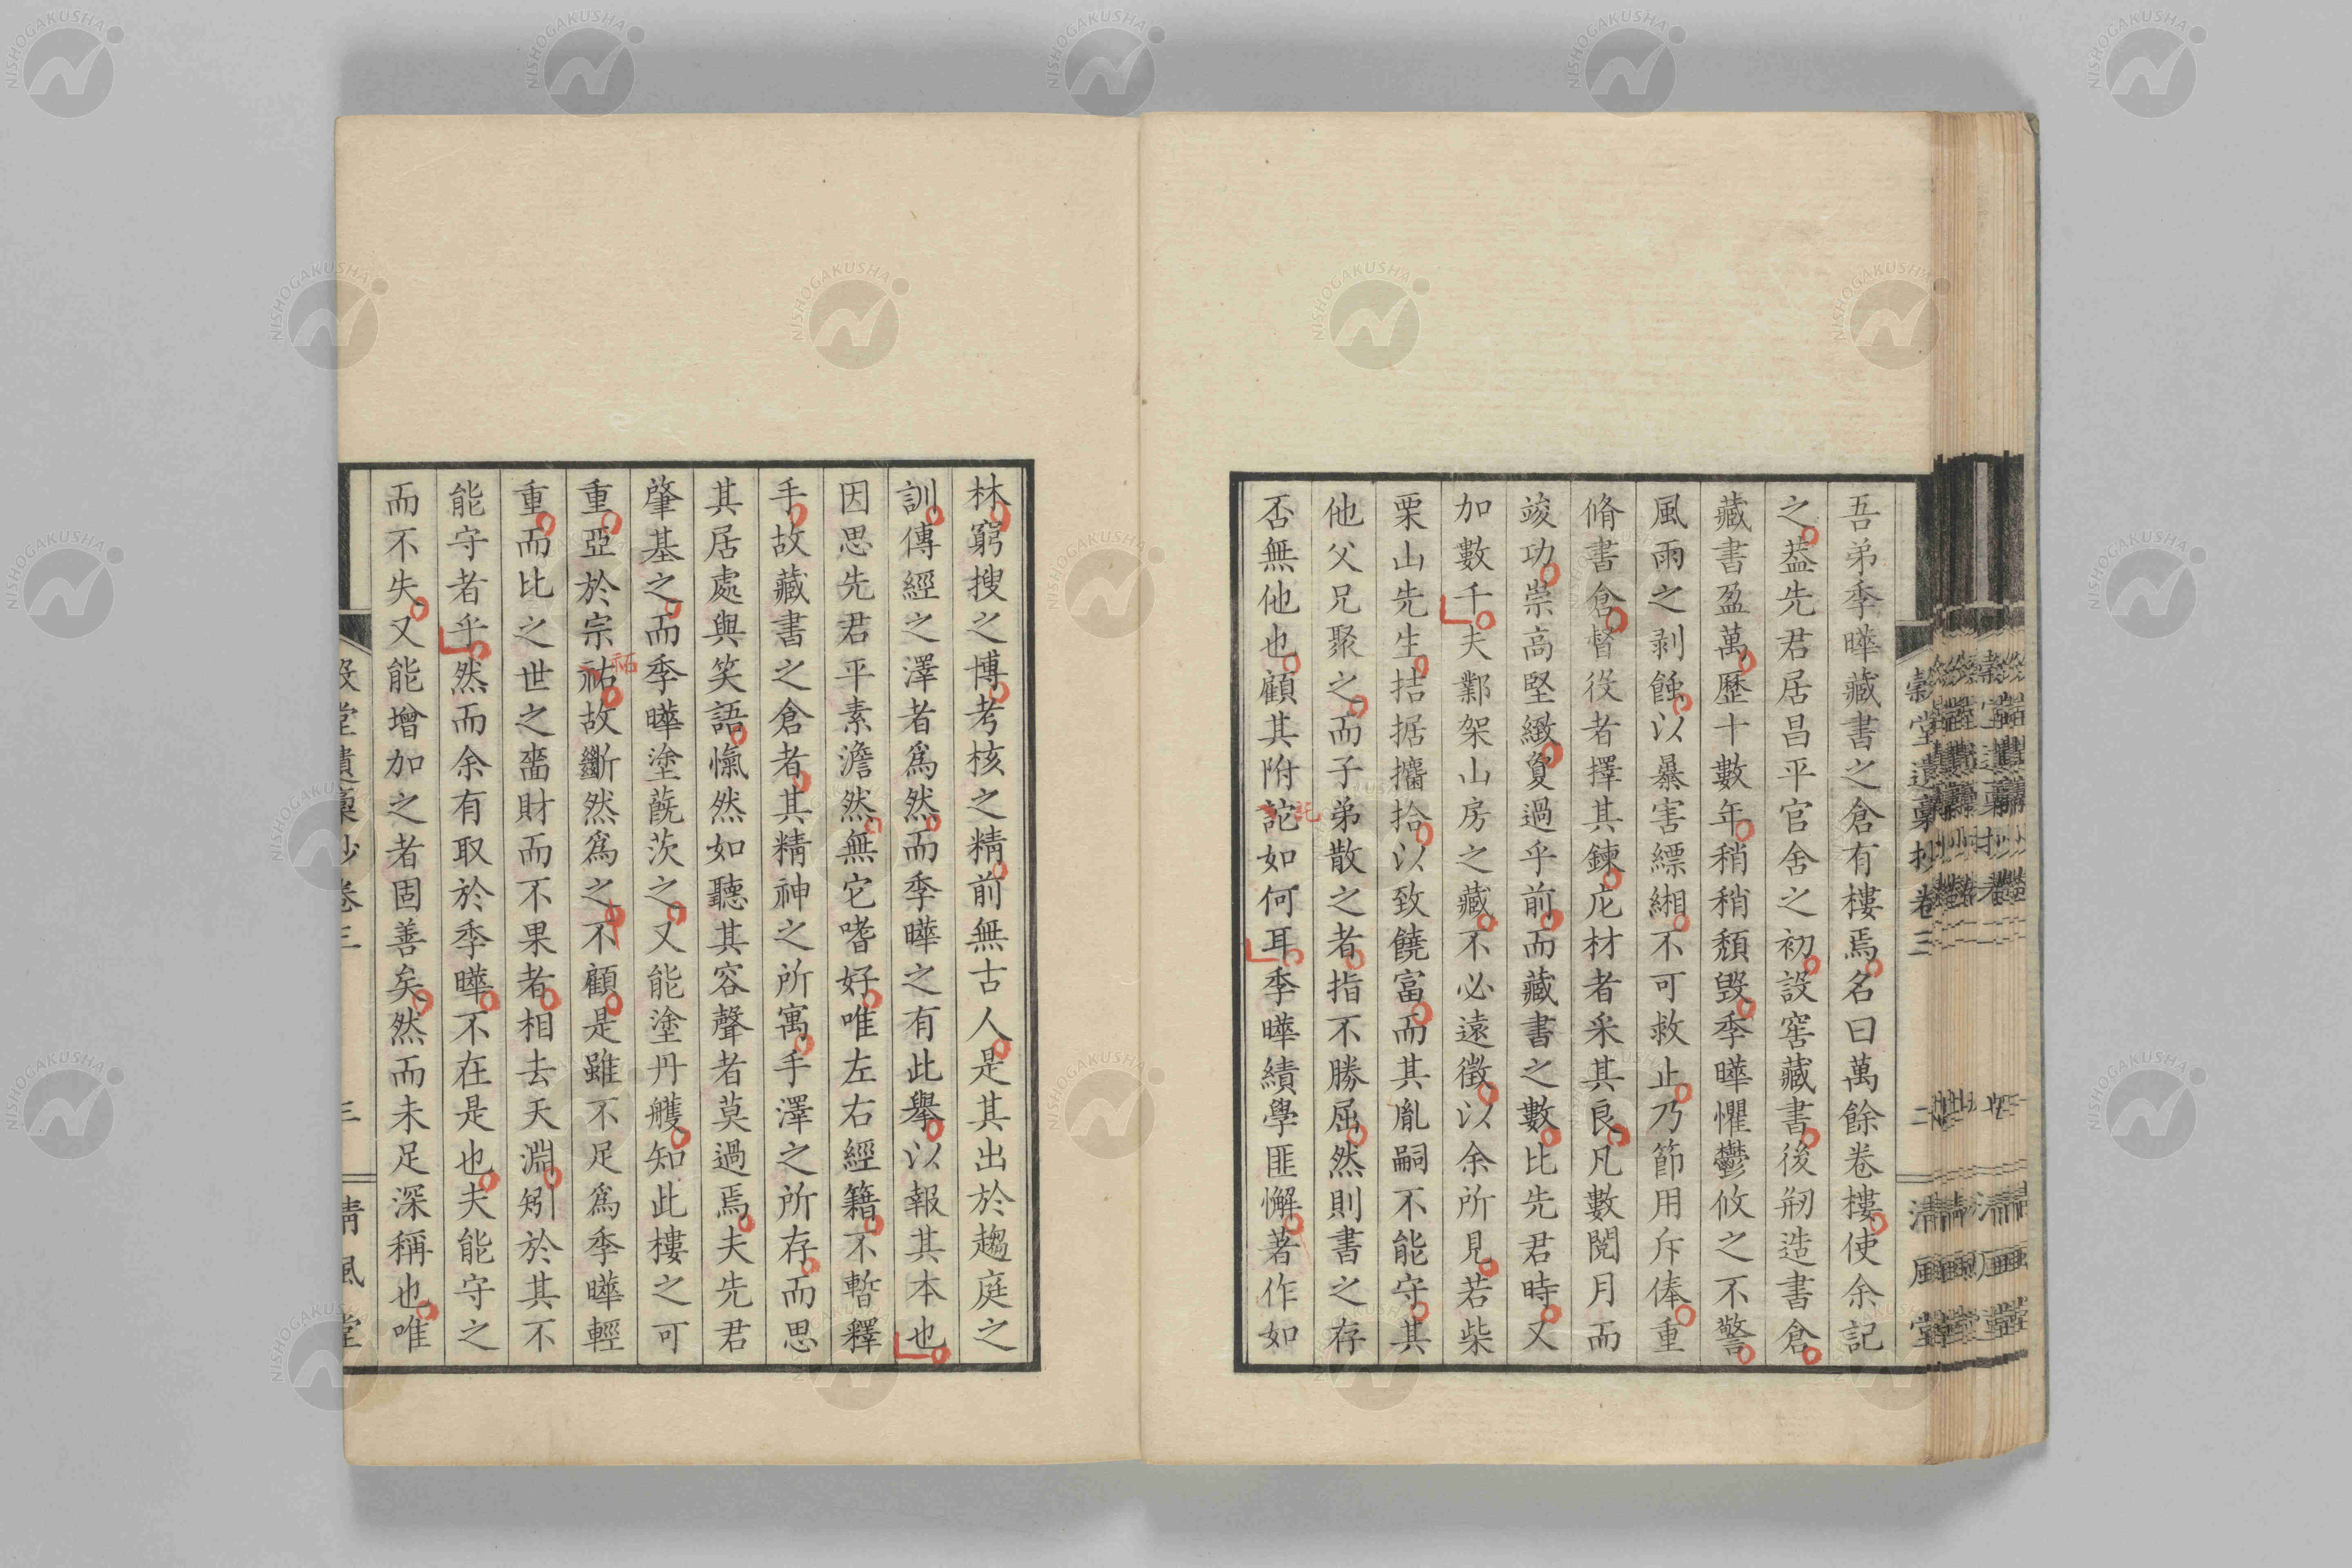 吾弟季曄藏書之倉有樓焉名曰萬餘卷樓使余記
之葢先君居昌平官舍之初設窖藏書後剏造書倉
藏書盈萬歷十數年稍稍頹毀季曄懼鬱攸之不警
風雨之剥蝕以暴害縹緗不可救止乃節用斥俸重
脩書倉督役者擇其鍊庀材者采其良凡數閱月而
竣功崇高堅緻敻過乎前而藏書之數比先君時又
加數千夫鄴架山房之藏不必遠徵以余所見若柴
栗山先生拮据攟拾以致饒富而其胤嗣不能守其
他父兄聚之而子弟散之者指不勝屈然則書之存
否無他也顧其附詑如何耳季曄績學匪懈著作如
託
林窮搜之博考核之精前無古人是其出於趨庭之
訓傳經之澤者爲然而季曄之有此舉以報其本也
因思先君平素澹然無它嗜好唯左右經籍不暫釋
手故藏書之倉者其精神之所寓手澤之所存而思
其居處與笑語愾然如聽其容聲者莫過焉夫先君
肇基之而季曄塗蔇茨之又能塗丹雘知此樓之可
重亞於宗祐故斷然爲之不顧是雖不足爲季曄輕
祏
重而比之世之嗇財而不果者相去天淵矧於其不
能守者乎然而余有取於季曄不在是也夫能守之
而不失又能增加之者固善矣然而未足深稱也唯
穀堂遺稾抄卷三
二
清風堂
三
NISHOGAKUSHA